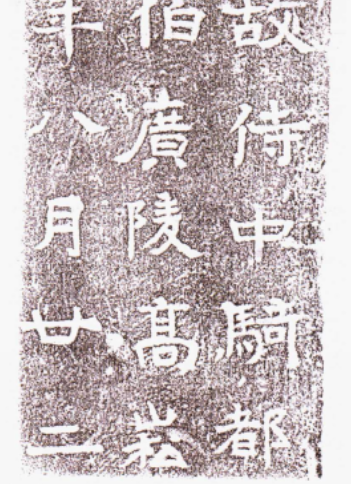 故侍中騎都
伯廣陵髙崧
年八月廿二